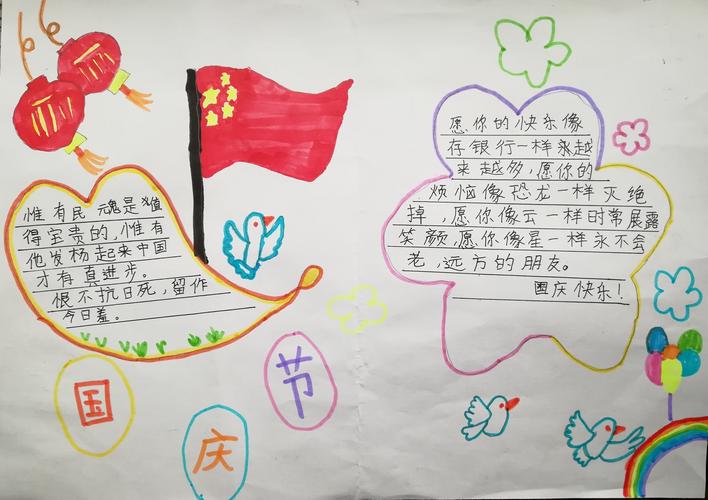 惟有民魂是值
得宝贵的，惟有
他发杨起来中国
才有真进步。
恨不抗日死，留作
今日羞。
国
庆
节
愿你的快乐像
存银行一样永越
来越多，愿你的
烦恼像恐龙一样灭绝
掉，愿你像云一样时常展露
笑颜，愿你像星一样永不会
老，远方的朋友。
国庆快乐！